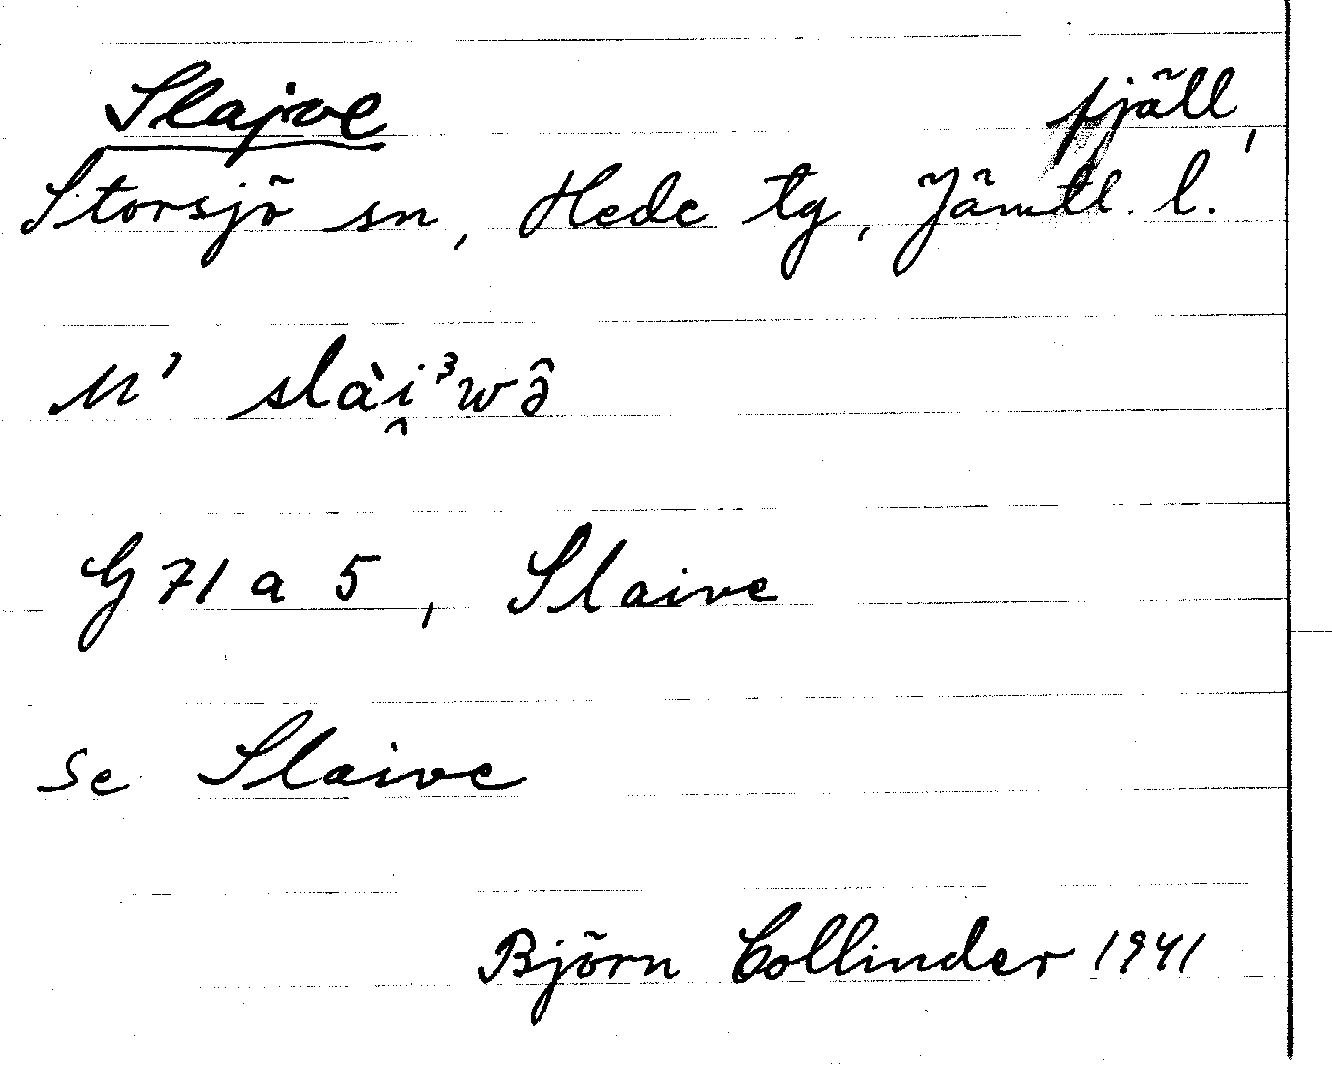 Slajve fjäll,
Storsjö sn, Hede tg, Jämtl. l.
M' slài̯³wə̂
G 71 a 5, Slaive
se Slaive
Björn Collinder 1941